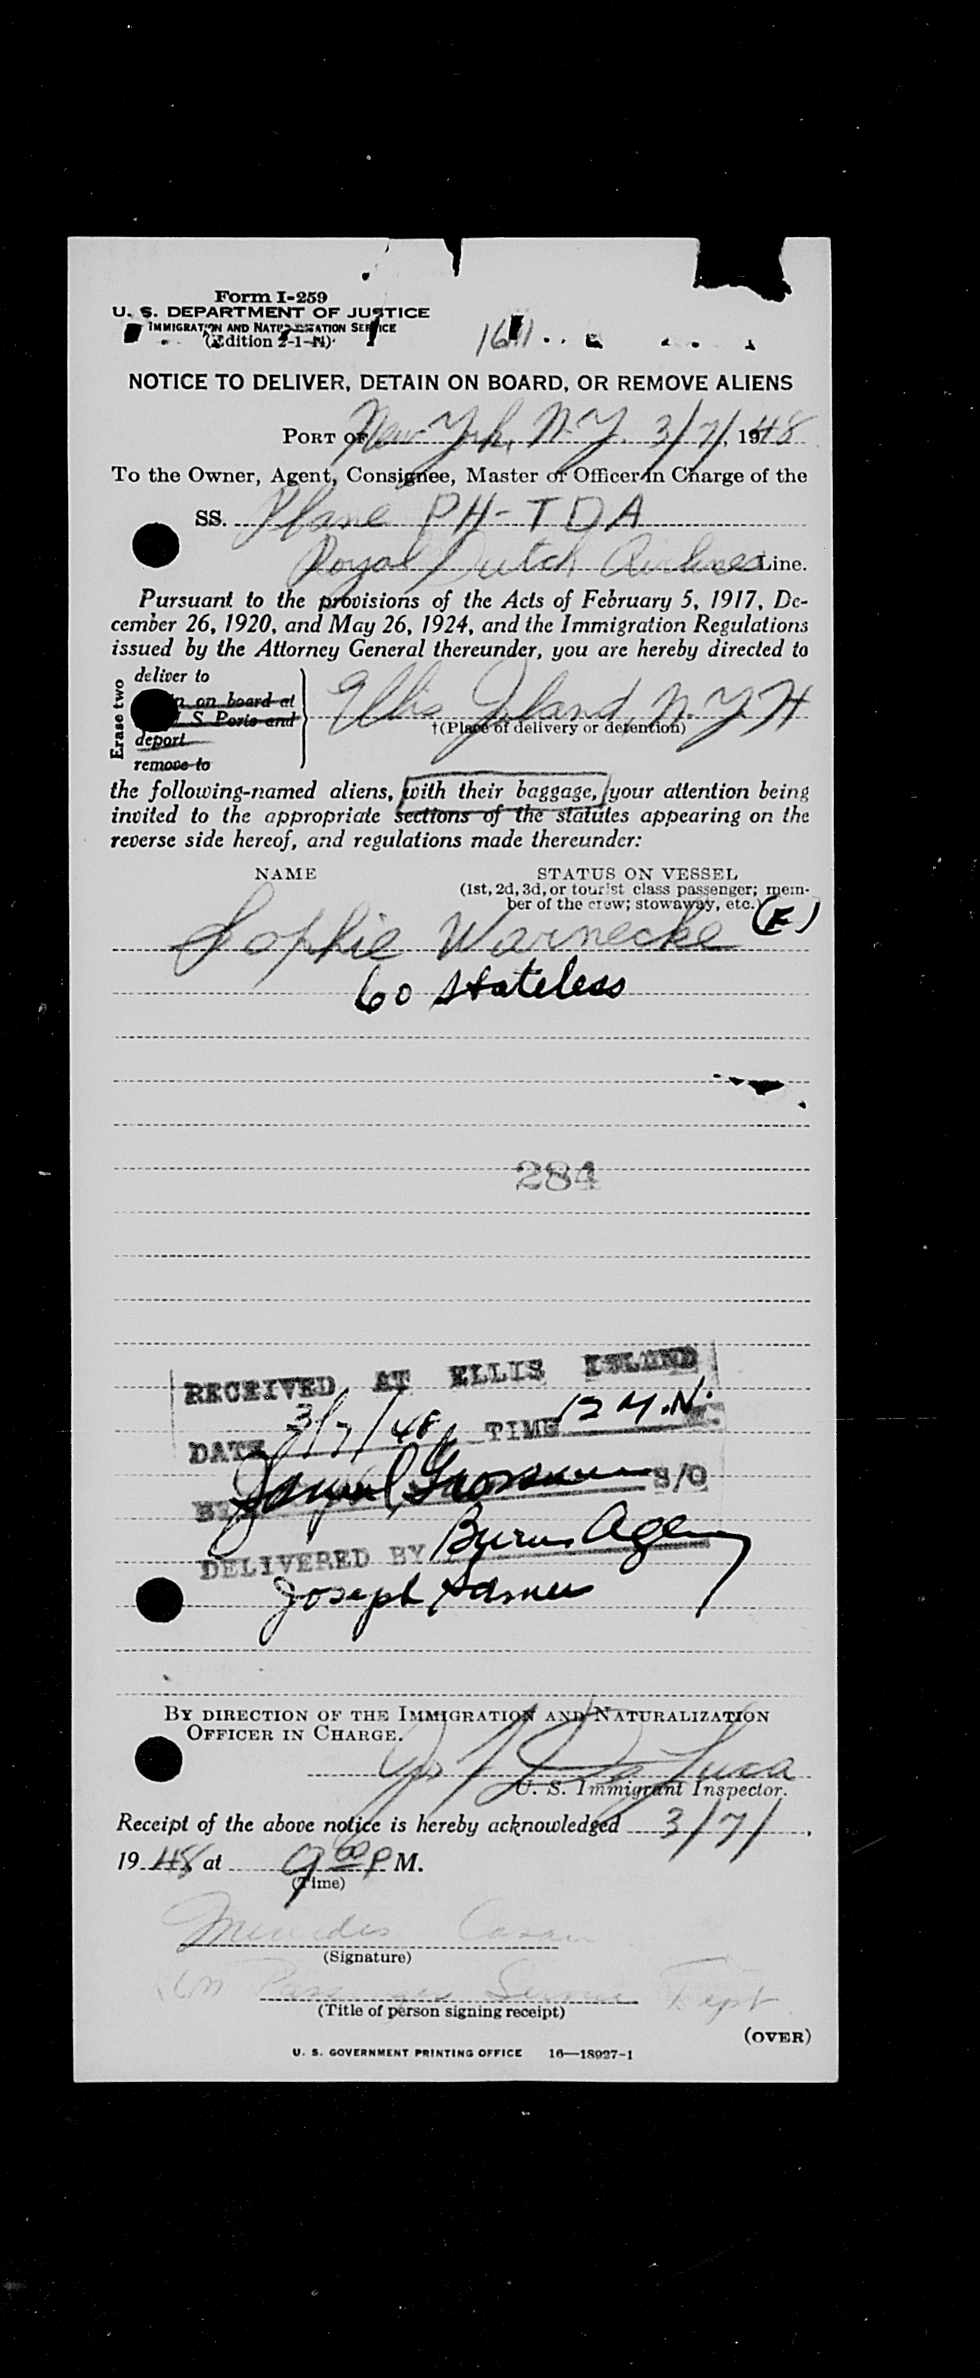 Form I-259
U. S. DEPARTMENT OF JUSTICE
IMMIGRATION AND NATURALIZATION SERVICE
(Edition 2-1-41)
NOTICE TO DELIVER, DETAIN ON BOARD, OR REMOVE ALIENS
PORT OF New York, N.Y. 3/7/, 1948
To the Owner, Agent, Consignee, Master or Officer in Charge of the
SS. Plane PH-TDA
Royal Dutch Airlines Line.
Pursuant to the provisions of the Acts of February 5, 1917, De-
cember 26, 1920, and May 26, 1924, and the Immigration Regulations
issued by the Attorney General thereunder, you are hereby directed to
Erase two
deliver to
on board at
S. Ports and
deport
remove to
Ellis Island N.Y.H
†(Place of delivery or detention)
the following-named aliens, with their baggage, your attention being
invited to the appropriate sections of the statutes appearing on the
reverse side hereof, and regulations made thereunder:
NAME STATUS ON VESSEL
(1st, 2d, 3d, or tourist class passenger; mem-
ber of the crew; stowaway, etc.)
Sophie Warnecke (F)
60 Stateless
284
RECEIVED AT ELLIS ISLAND
DATE 3/7/48 TIME 12 M.N. M.
BY Samuel Grossman S/O
DELIVERED BY Burns Agency
Joseph
BY DIRECTION OF THE IMMIGRATION AND NATURALIZATION
OFFICER IN CHARGE.
De Luca
U. S. Immigrant Inspector.
Receipt of the above notice is hereby acknowledged 3/7/,
1948 at 9 00 P M.
(Time)
(Signature)
Service Dept
(Title of person signing receipt)
(OVER)
U. S. GOVERNMENT PRINTING OFFICE 16—18927-1